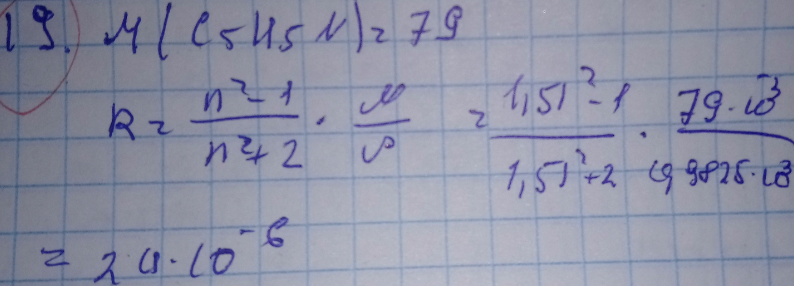 19. M(C5H5N)=79
R = n²-1 / n²+2 · M / ρ = 1,51²-1 / 1,51²+2 · 79·10⁻³ / 0,9825·10³
= 24·10⁻⁶